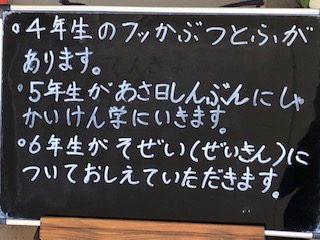 ・4年生のフッかぶつとふが
あります。
・5年生があさ日しんぶんにしゃ
かいけん学にいきます。
・6年生がそぜい(ぜいきん)に
ついておしえていただきます。